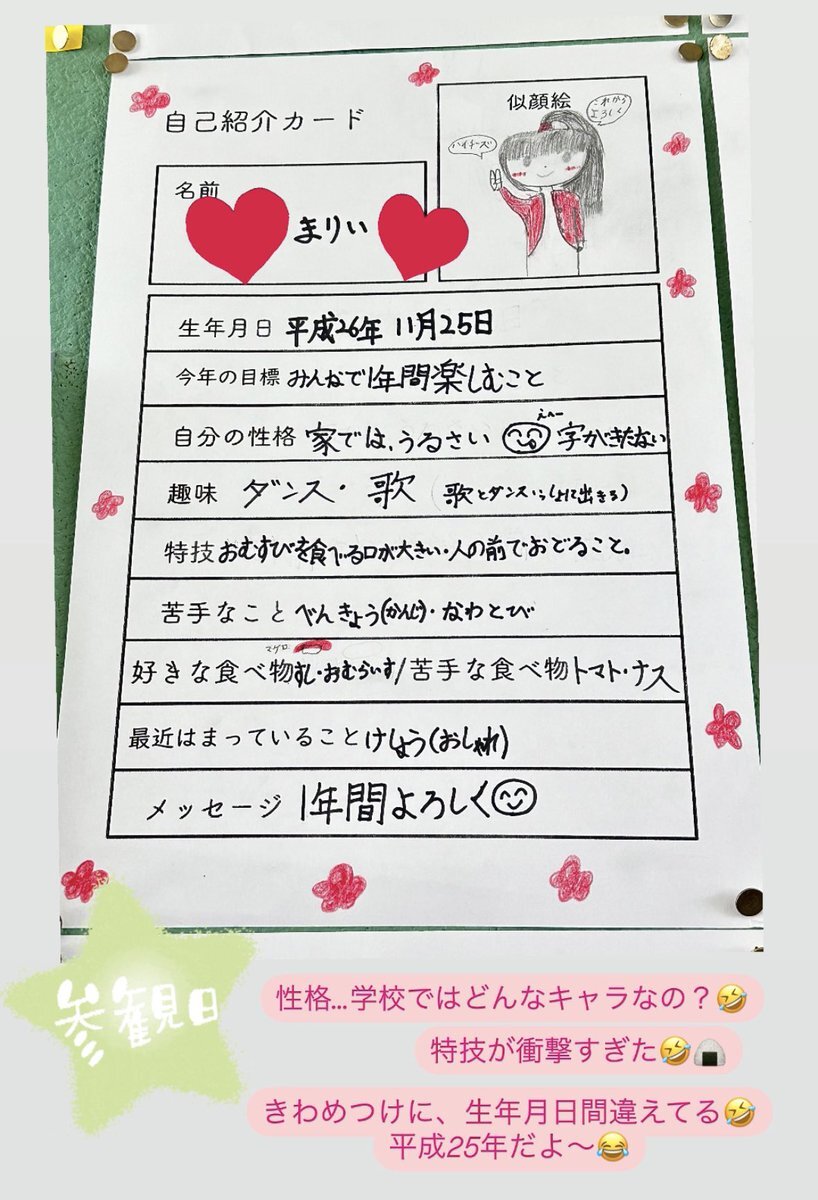 自己紹介カード
似顔絵
これから
よろしく
ハイチーズ
名前
まりい
生年月日 平成26年 11月25日
今年の目標 みんなで1年間楽しむこと
自分の性格 家では、うるさい 字がきたない
趣味 ダンス・歌 (歌とダンスいっしょに出きる)
特技 おむすびを食べる口が大きい・人の前でおどること。
苦手なこと べんきょう(かんじ)・なわとび
マグロ
好きな食べ物 すし・おむらいす/苦手な食べ物 トマト・ナス
最近はまっていること けしょう(おしゃれ)
メッセージ 1年間よろしく
参観日
性格...学校ではどんなキャラなの?🤣
特技が衝撃すぎた🤣🍙
きわめつけに、生年月日間違えてる🤣
平成25年だよ〜😂